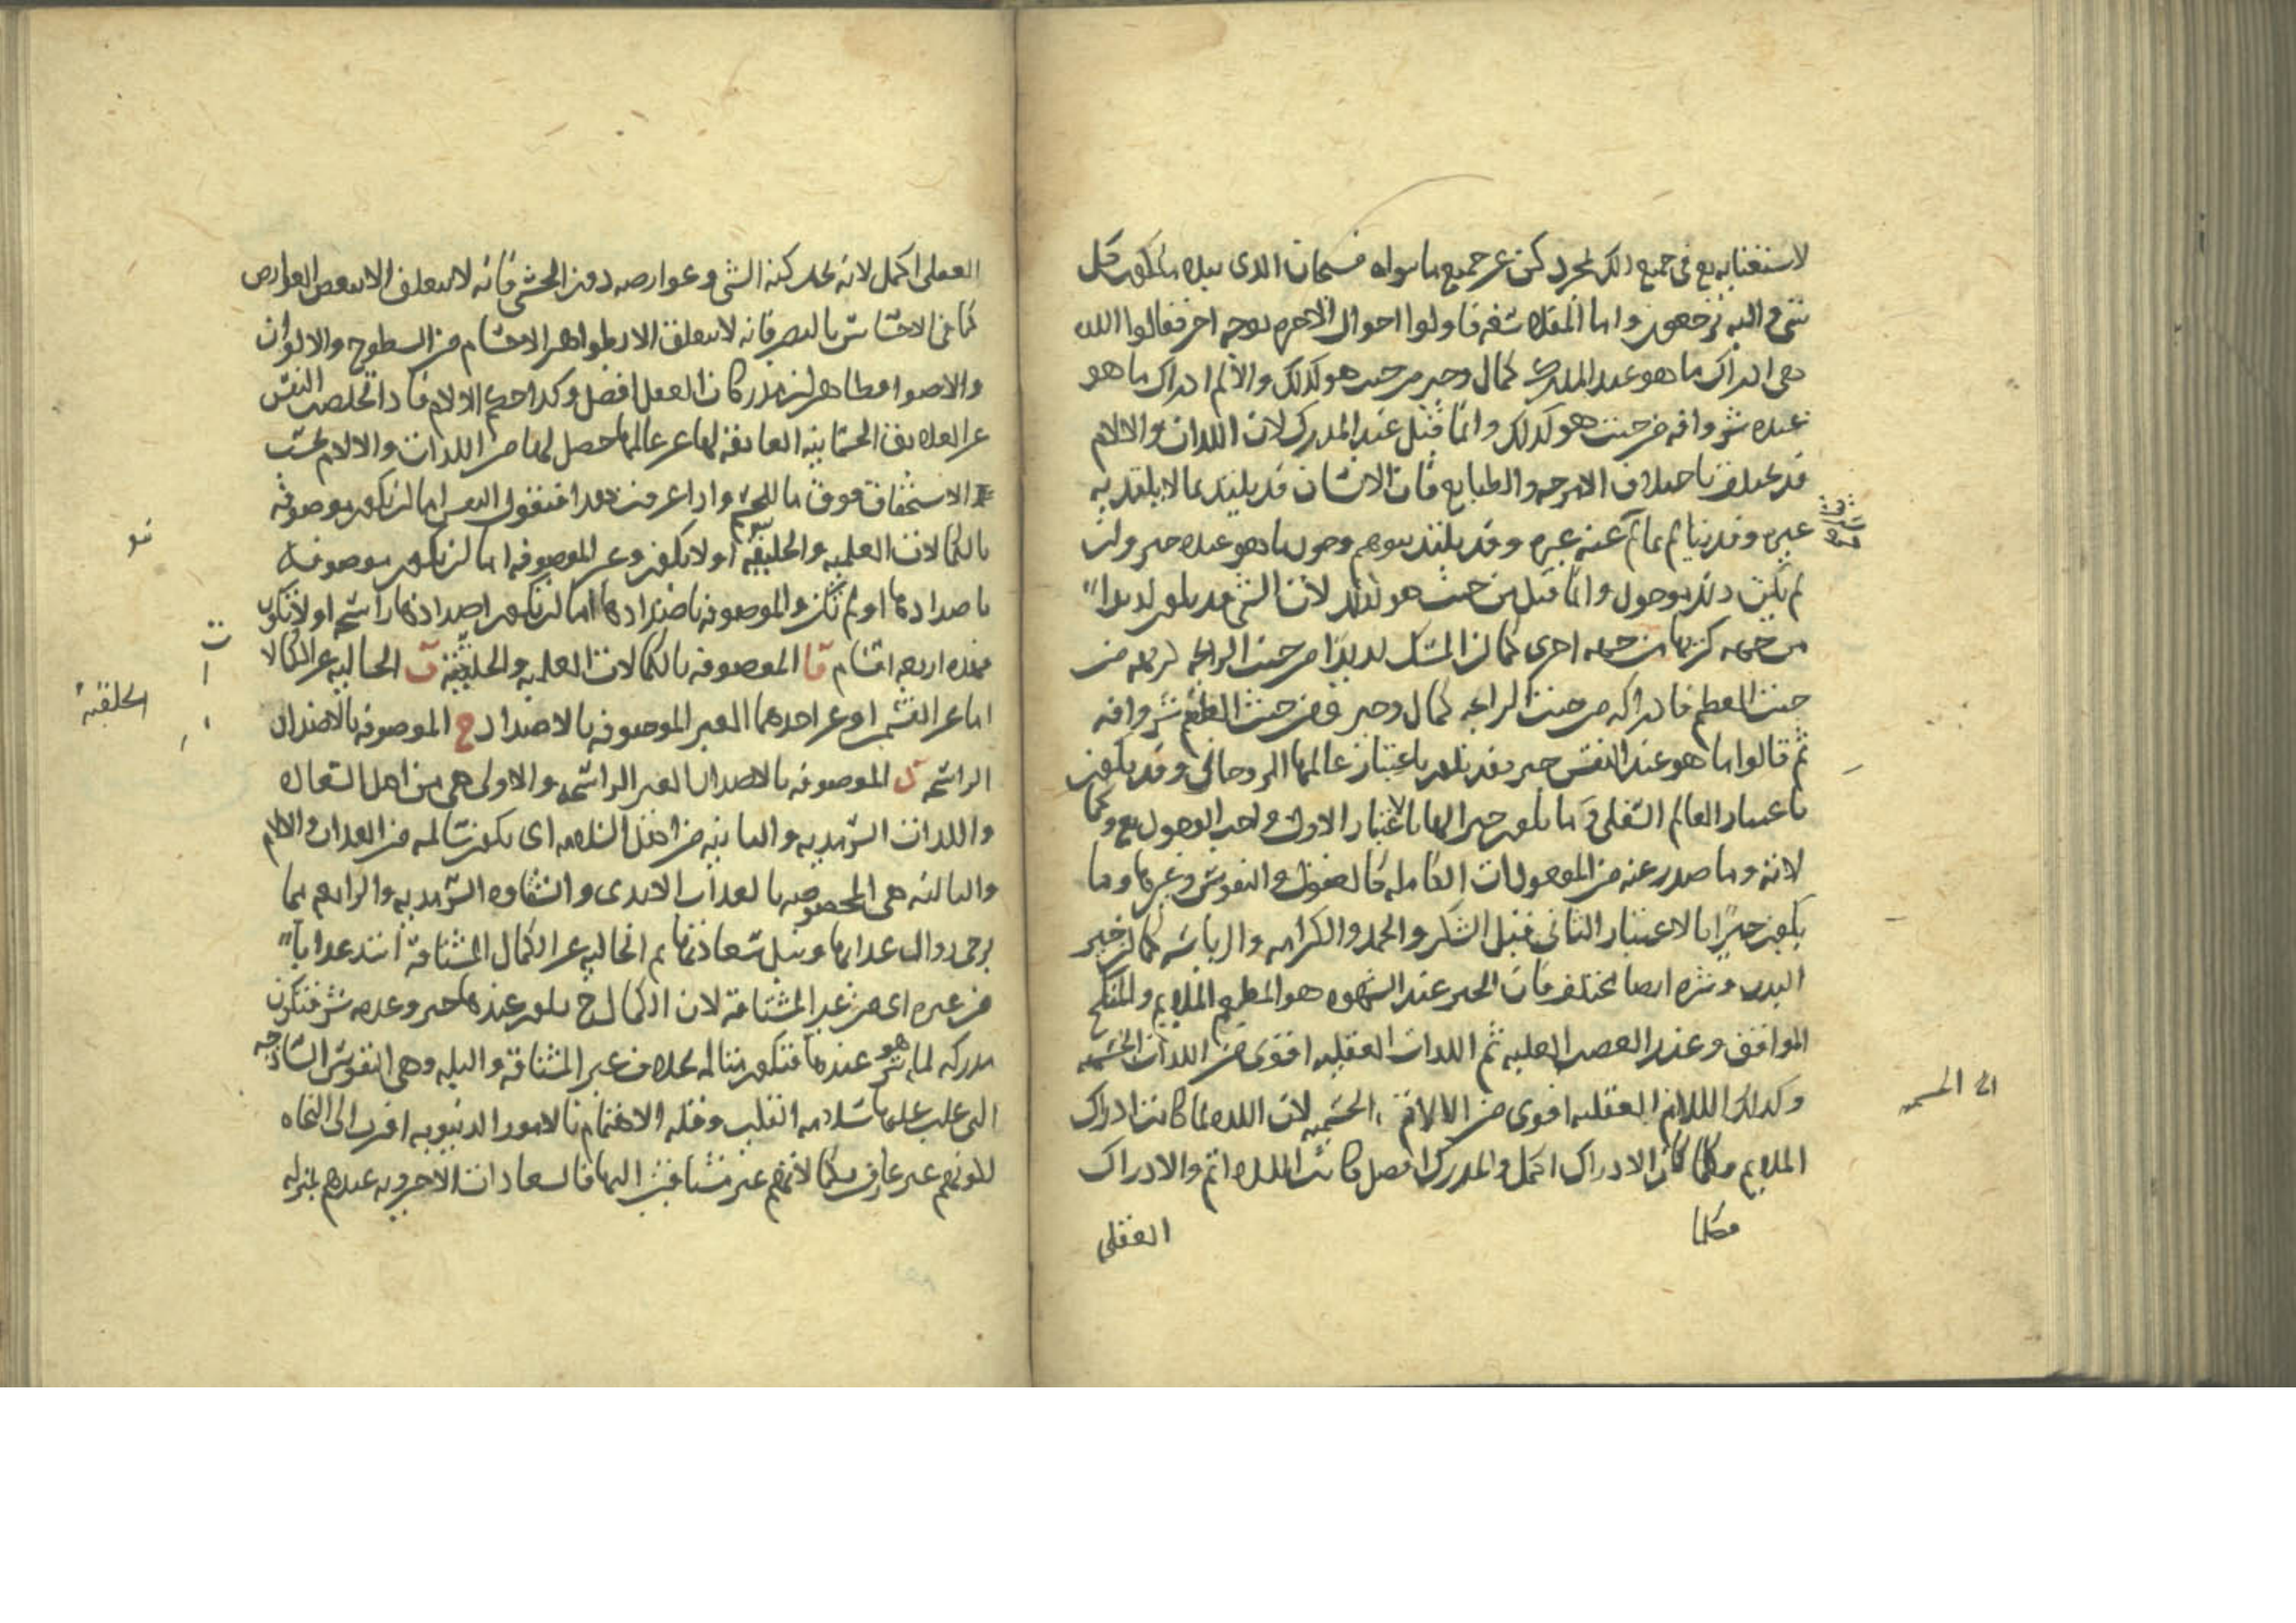 لاستغنائه تع فى جميع ذلك لمجرد كن عن جميع ما سواه فسبحان الذى بيده ملكوت كل
شى واليه ترجعون واما الفلاسفه فاولوا احوال الاخره بوجه اخر فقالوا اللذه
هى ادراك ما هو عند المدرك كمال وخير من حيث هو كذلك والالم ادراك ما هو
عنده شر وافه من حيث هو كذلك وانما قيل عند المدرك لان اللذات والالام
قد تختلف باختلاف الامزجه والطبايع فان الانسان قد يلتذ بما لا يلتذ به
غيره وقد يتالم بما لم عنه غيره وقد يلتذ بتوهم وصول ما هو عنده خير وان
لم يكن وانما قيل من حيث هو كذلك لان الشى قد يكون لذيذا
من جهه كريها من جهه اخرى كما ان المسك لذيذا من حيث الرايحه كريهه من
حيث الطعم فادراكه من حيث الرايحه كمال وخير ومن حيث الطعم شر وافه
ثم قالوا ما هو عند النفس خير فقد يكون باعتبار عالمها الروحانى وقد يكون
باعتبار العالم السفلى وما يكون خيرا لها بالاعتبار الاول واجب الوجود تع وكما
لاته وما صدر عنه من الموجودات الكامله كالعقول والنفوس وغيرها وما
يكون خيرا بالاعتبار الثانى فنيل الشكر والحمد والكرامه والرياسه كما ان خير
البدن وشره ايضا تختلف فان الخير عند الشهوه هو المطعم الملايم والمنكح
الموافق وعند الغضب الغلبه ثم اللذات العقليه اقوى من اللذات الحسيه
وكذلك الالام العقليه اقوى من الالام الحسيه لان اللذه لما كانت ادراك
الملايم فكلما كان الادراك اكمل والمدرك افضل كانت اللذه اتم والادراك
فكلما
العقلى
العقلى اكمل لانه يحد كنه الشى وعوارضه دون الحسى فانه لا يتعلق الا ببعض العوارض
كما فى الاحساس بالبصر فانه لا يتعلق الا بظواهر الاجسام من السطوح والالوان
والاضوا فظاهر ان مدركات العقل افضل وكذا حكم الالام فاذا تخلصت النفس
عن العلايق الجسمانيه العايقه لها عن عالمها حصل لها من اللذات والالام بحسب
الاستحقاق فوق ما للحس واذا عرفت هذا فنقول النفس اما ان تكون موصوفه
بالكمالات العلميه والخلقيه او لا تكون وغير الموصوفه اما ان تكون موصوفه
باضدادها او لم تكن والموصوفه باضدادها اما ان تكون اضدادها راسخه او لا تكون
فهذه اربعه اقسام ا الموصوفه بالكمالات العلميه والخلقيه ب الخاليه عن الكمالا
اما عن القسمين او عن احدهما الغير الموصوفه بالاضداد ج الموصوفه بالاضداد
الراسخه د الموصوفه بالاضداد الغير الراسخه والاولى هى من اهل السعاده
واللذات السرمديه والثانيه من اهل السلامه اى يكون سالمه من العذاب والالام
والثالثه هى المخصوصه بالعذاب الابدى والشقاوه السرمديه والرابعه مما
يرجى زوال عذابها ونيل سعادتها ثم الخاليه عن الكمال المشتاقه اشد عذابا
من غيره اى من غير المشتاقه لان الكمال ح يكون عندها خير وعدمه شر فتكون
مدركه لما هو شر عندها فتكون متالمه بخلاف غير المشتاقه والبله وهى النفوس الساذجه
التى غلب عليها سلامه القلب وقله الاهتمام بالامور الدنيويه اقرب الى النجاه
لكونهم غير عارفين بكمالاتهم غير مشتاقين اليها فالسعادات الاخرويه عندهم بمنزله
الخلقية